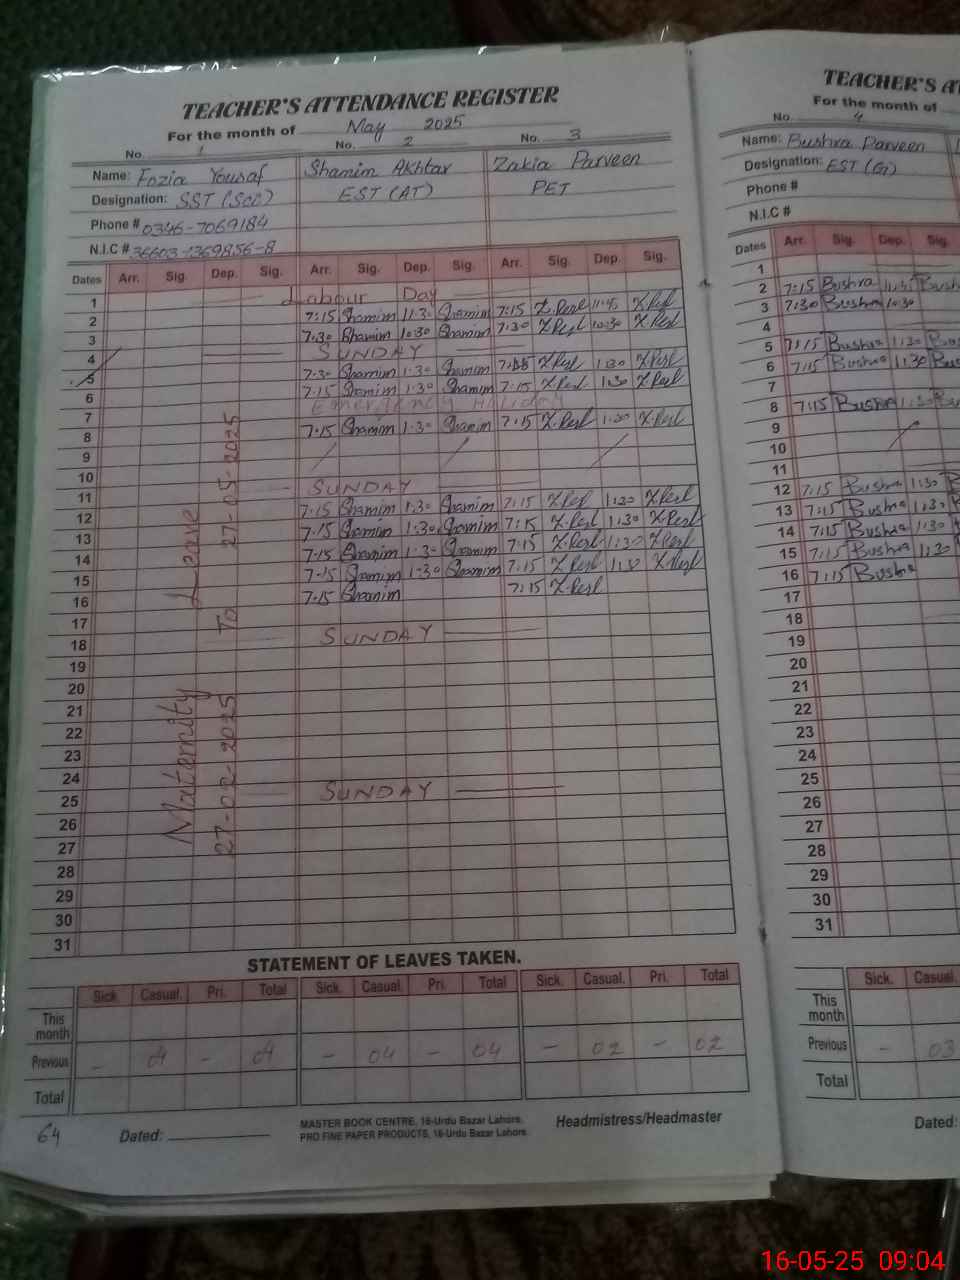 TEACHER'S ATTENDANCE REGISTER
For the month of May 2025
No. 1 No. 2 No. 3
Name: Fozia Yousaf Shamim Akhtar Zakia Parveen
Designation: SST (Sci) EST (AT) PET
Phone # 0346-7069184
N.I.C # 36603-1369856-8
Dates Arr. Sig. Dep. Sig. Arr. Sig. Dep. Sig. Arr. Sig. Dep. Sig.
1 Labour Day
2 7:15 Shamim 11:30 Shamim 7:15 Z.Perl 11:45 Z.Perl
3 7:30 Shamim 10:30 Shamim 7:30 Z.Perl 10:30 Z.Perl
4 SUNDAY
5 7:30 Shamim 1:30 Shamim Z.Perl 1:30 Z.Perl
6 7:15 Shamim 1:30 Shamim 7:15 Z.Perl 1:30 Z.Perl
7 Emergency Holiday
8 7:15 Shamim 1:30 Shamim 7:15 Z.Perl 1:30 Z.Perl
9
10
11 SUNDAY
12 7:15 Shamim 1:30 Shamim 7:15 Z.Perl 1:30 Z.Perl
13 7:15 Shamim 1:30 Shamim 7:15 Z.Perl 1:30 Z.Perl
14 7:15 Shamim 1:30 Shamim 7:15 Z.Perl 1:30 Z.Perl
15 7:15 Shamim 1:30 Shamim 7:15 Z.Perl 1:30 Z.Perl
16 7:15 Shamim 7:15 Z.Perl
17
18 SUNDAY
19
20
21
22
23
24
25 SUNDAY
26
27
28
29
30
31
Maternity Leave
27-02-2025 To 27-05-2025
STATEMENT OF LEAVES TAKEN.
Sick. Casual. Pri. Total Sick. Casual. Pri. Total Sick. Casual. Pri. Total
This month
Previous - 04 - 04 - 04 - 04 - 02 - 02
Total
64
Dated:
MASTER BOOK CENTRE, 16-Urdu Bazar Lahore.
PRO FINE PAPER PRODUCTS, 16-Urdu Bazar Lahore.
Headmistress/Headmaster
TEACHER'S
For the month of
No. 4
Name: Bushra Parveen
Designation: EST (G)
Phone #
N.I.C #
Dates Arr. Sig. Dep. Sig.
1
2 7:15 Bushra 11:30 Bushra
3 7:30 Bushra 10:30
4
5 7:15 Bushra 1:30
6 7:15 Bushra 1:30
7
8 7:15 Bushra 1:30
9
10
11
12 7:15 Bushra 1:30
13 7:15 Bushra 1:30
14 7:15 Bushra 1:30
15 7:15 Bushra 1:30
16 7:15 Bushra
17
18
19
20
21
22
23
24
25
26
27
28
29
30
31
Sick. Casual.
This month
Previous - 03
Total
Dated:
16-05-25 09:04